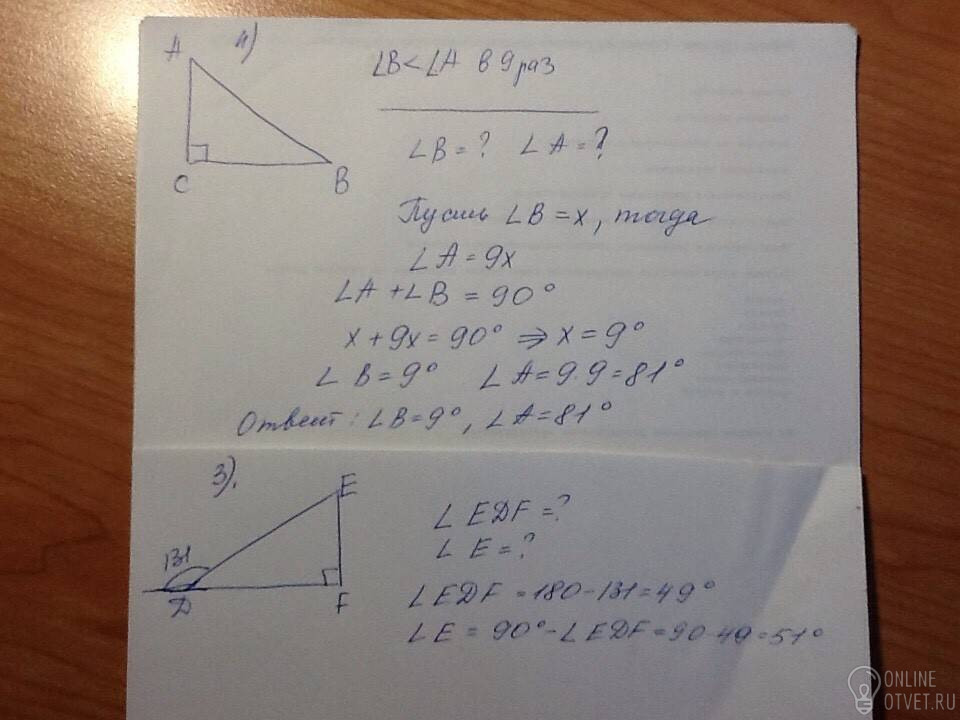 4)
A
C
B
∠B < ∠A в 9 раз
∠B = ? ∠A = ?
Пусть ∠B = x, тогда
∠A = 9x
∠A + ∠B = 90°
x + 9x = 90° ⇒ x = 9°
∠B = 9° ∠A = 9·9 = 81°
Ответ: ∠B = 9°, ∠A = 81°
3).
E
131
D
F
∠EDF = ?
∠E = ?
∠EDF = 180 - 131 = 49°
∠E = 90° - ∠EDF = 90 - 49 = 51°
ONLINE
OTVET.RU